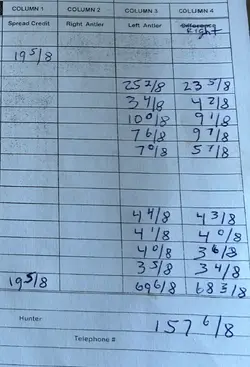 COLUMN 1 COLUMN 2 COLUMN 3 COLUMN 4
Spread Credit Right Antler Left Antler Difference
Right
19 5/8
25 2/8 23 5/8
3 4/8 4 2/8
10 0/8 9 1/8
7 6/8 9 7/8
7 0/8 5 7/8
4 4/8 4 3/8
4 1/8 4 0/8
4 0/8 3 6/8
3 5/8 3 4/8
19 5/8 69 6/8 68 3/8
Hunter 157 6/8
Telephone #